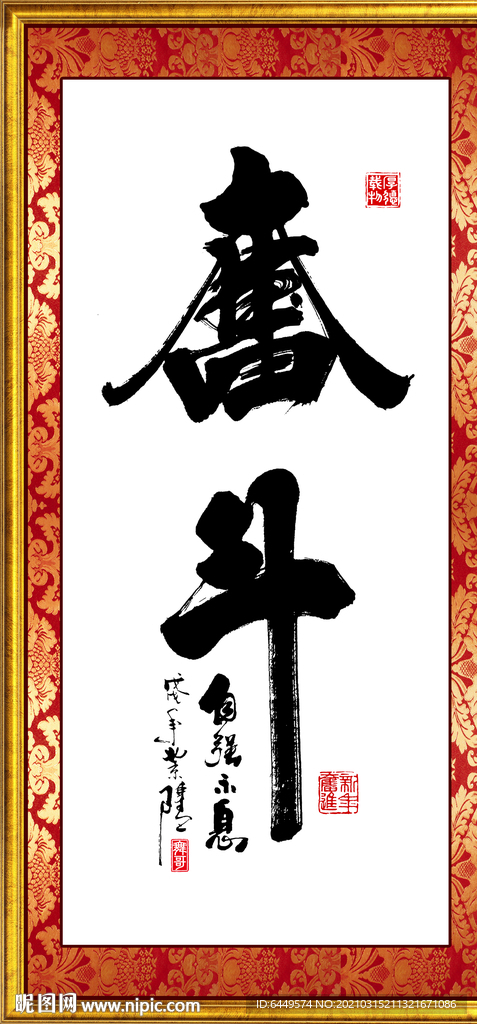 奮斗
厚德
載物
自强不息
新年
奮進
昵图网 www.nipic.com
ID:6449574 NO:20210315211321671086